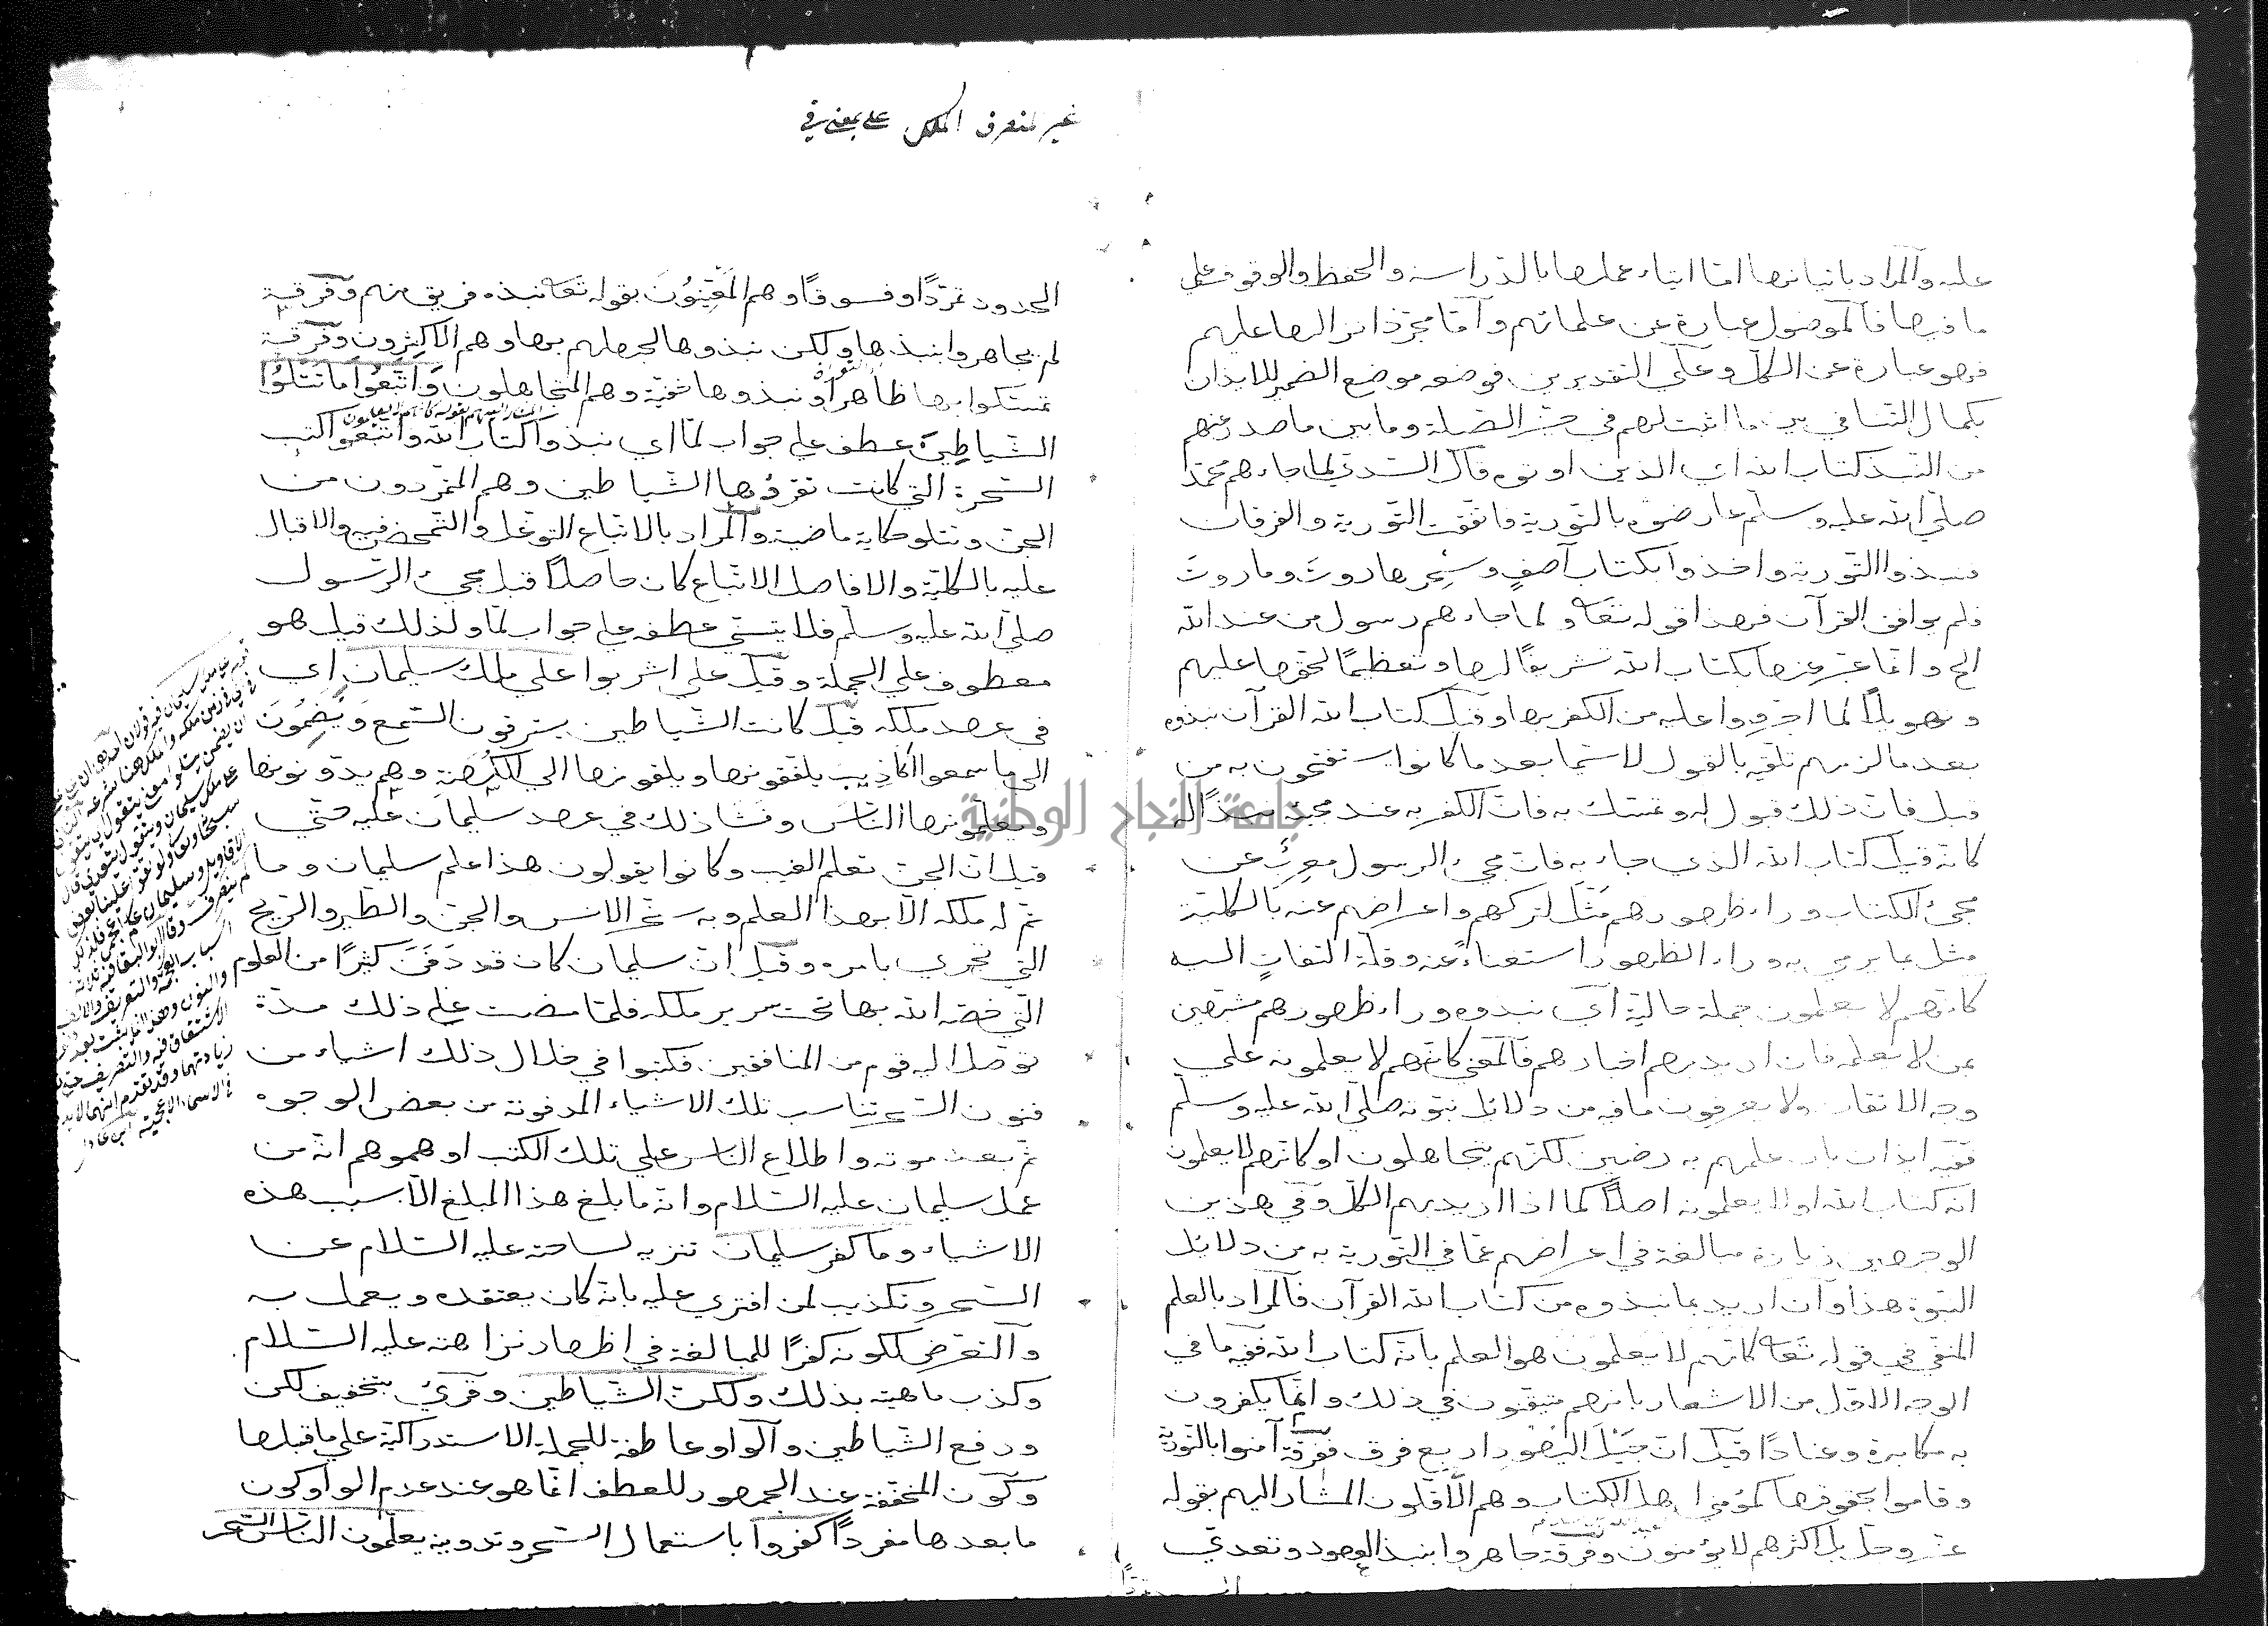 غير المنصرف الملكي على بمعنى في
عليه والمراد بايتائها اما ايتاء علمها بالدراسة والحفظ والوقوف على
ما فيها فالموصول عبارة عن علمائهم وآما مجرد انزالها عليهم
فهو عبارة عن الكل وعلى التقديرين فوضعه موضع الضمير للايذان
بكمال التنافي بين ما اثبت لهم في حيز الصلة وما بين ما صدر عنهم
من النبذ كتاب الله اي الذين اوتوه قال السدي لما جاءهم محمد
صلى الله عليه وسلم عارضوه بالتورية فاتفقت التورية والفرقان
فنبذوا التورية واخذوا بكتاب آصف وسحر هاروت وماروت
فلم يوافق القرآن فهذا قوله تعا ولما جاءهم رسول من عند الله
الخ وانما عبر عنها بكتاب الله تشريفا لها وتعظيما لحقها عليهم
وتهويلا لما اجترؤا عليه من الكفر بها وقيل كتاب الله القرآن نبذوه
بعد ما لزمهم تلقيه بالقبول لا سيما بعد ما كانوا يستفتحون به من
قبل فان ذلك قبول له وتمسك به فان الكفر به عند مجيئه نبذ له
كانه قيل كتاب الله الذي جاء به فان مجيء الرسول معرب عن
مجيء الكتاب وراء ظهورهم مثل لتركهم واعراضهم عنه بالكلية
مثل بما يرمى به وراء الظهور استغناء عنه وقلة التفات اليه
كانهم لا يعلمون جملة حالية اي نبذوه وراء ظهورهم مشبهين
بمن لا يعلمه فان اريد بهم احبارهم فالمعنى كانهم لا يعلمونه على
وجه الاتقان ولا يعرفون ما فيه من دلائل نبوته صلى الله عليه وسلم
ففيه ايذان بان علمهم به رصين لكنهم يتجاهلون او كانهم لا يعلمون
انه كتاب الله او لا يعلمونه اصلا كما اذا اريد بهم الكل وفي هذين
الوجهين زيادة مبالغة في اعراضهم عما في التورية من دلائل
النبوة هذا وان اريد بما نبذوه من كتاب الله القرآن فالمراد بالعلم
المنفي في قوله تعا كانهم لا يعلمون هو العلم بانه كتاب الله ففيه ما في
الوجه الاول من الاشعار بانهم متيقنون في ذلك وانما يكفرون
به مكابرة وعنادا قيل ان جيل اليهود اربع فرق ففرقة آمنوا بالتورية
وقاموا بحقوقها كمؤمني اهل الكتاب وهم الاقلون المشار اليهم بقوله
عز وجل بل اكثرهم لا يؤمنون وفرقة جاهروا بنبذ العهود وتعدي
الحدود تمردا وفسوقا وهم المعنيون بقوله تعا نبذه فريق منهم وفرقة
لم يجاهروا بنبذها ولكن نبذوها لجهلهم بها وهم الاكثرون وفرقة
تمسكوا بها ظاهرا ونبذوها خفية وهم المتجاهلون واتبعوا ما تتلوا
المشار اليهم بقوله كانهم لا يعلمون
الشياطين عطف على جواب لما اي نبذوا كتاب الله واتبعوا كتب
السحرة التي كانت تقرؤها الشياطين وهم المتمردون من
الجن وتتلو حكاية ماضية والمراد بالاتباع التوغل والتمحض فيه والاقبال
عليه بالكلية والا فاصل الاتباع كان حاصلا قبل مجيء الرسول
صلى الله عليه وسلم فلا يتسنى عطفه على جواب لما ولذلك قيل هو
معطوف على الجملة وقيل على اشربوا على ملك سليمان اي
في عهد ملكه قيل كانت الشياطين يسترقون السمع ويضمون
الى ما سمعوا اكاذيب يلفقونها ويلقونها الى الكهنة وهم يدونونها
ويعلمونها الناس وفشا ذلك في عهد سليمان عليه حتى
قيل ان الجن تعلم الغيب وكانوا يقولون هذا علم سليمان وما
تم له ملكه الا بهذا العلم وبه سخر الانس والجن والطير والريح
التي تجري بامره وقيل ان سليمان كان قد دفن كثيرا من العلوم
التي خصه الله بها تحت سرير ملكه فلما مضت على ذلك مدة
توصل اليه قوم من المنافقين فكتبوا في خلال ذلك اشياء من
فنون السحر تناسب تلك الاشياء المدفونة من بعض الوجوه
ثم بعد موته واطلاع الناس على تلك الكتب اوهموهم انه من
عمل سليمان عليه السلام وانه ما بلغ هذا المبلغ الا بسبب هذه
الاشياء وما كفر سليمان تنزيه لساحته عليه السلام عن
السحر وتكذيب لمن افترى عليه بانه كان يعتقده ويعمل به
والتعرض لكونه كفرا للمبالغة في اظهار نزاهته عليه السلام
وكذب باهتيه بذلك ولكن الشياطين وقرئ بتخفيف لكن
ورفع الشياطين والواو عاطفة للجملة الاستدراكية على ما قبلها
وكون المخففة عند الجمهور للعطف انما هو عند عدم الواو وكون
ما بعدها مفردا كفروا باستعمال السحر وتدوينه يعلمون الناس السحر